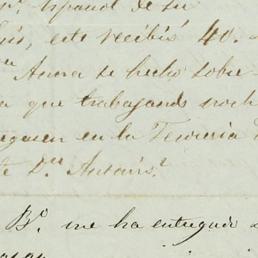 Español de su
este recibió 40.
Ahora se hecho sobre
que trabajando noch
en la Tesoreria
te Dn Antonio
Bo me ha entregado